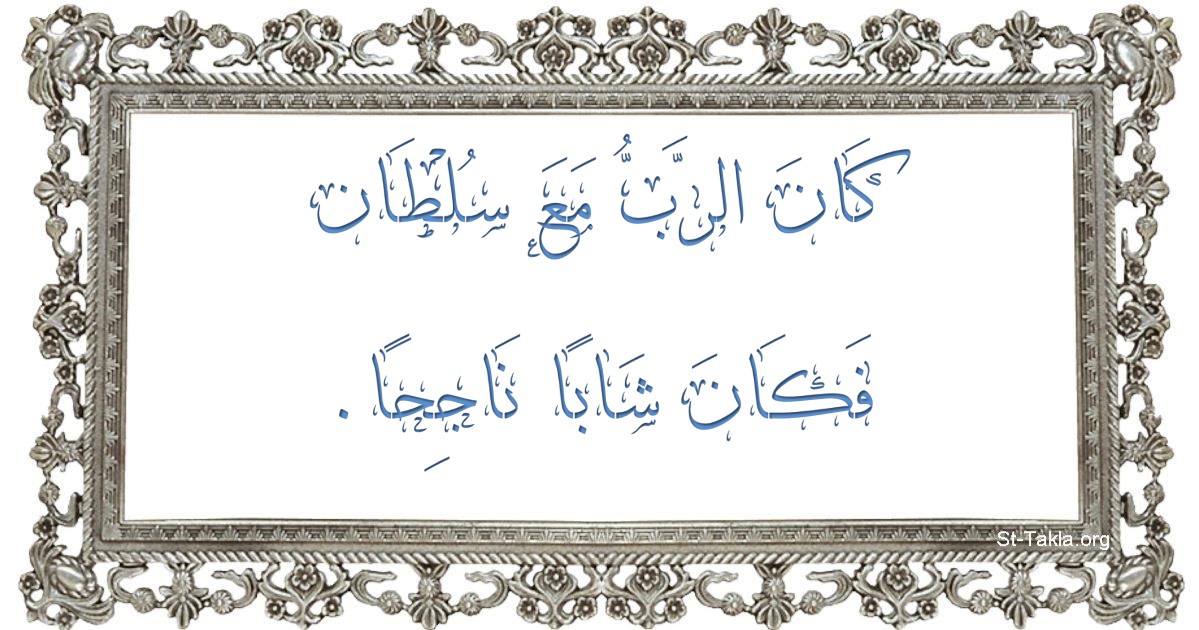 كَانَ الرَّبُّ مَعَ سُلْطَان
فَكَانَ شَابًا نَاجِحًا .
St-Takla.org